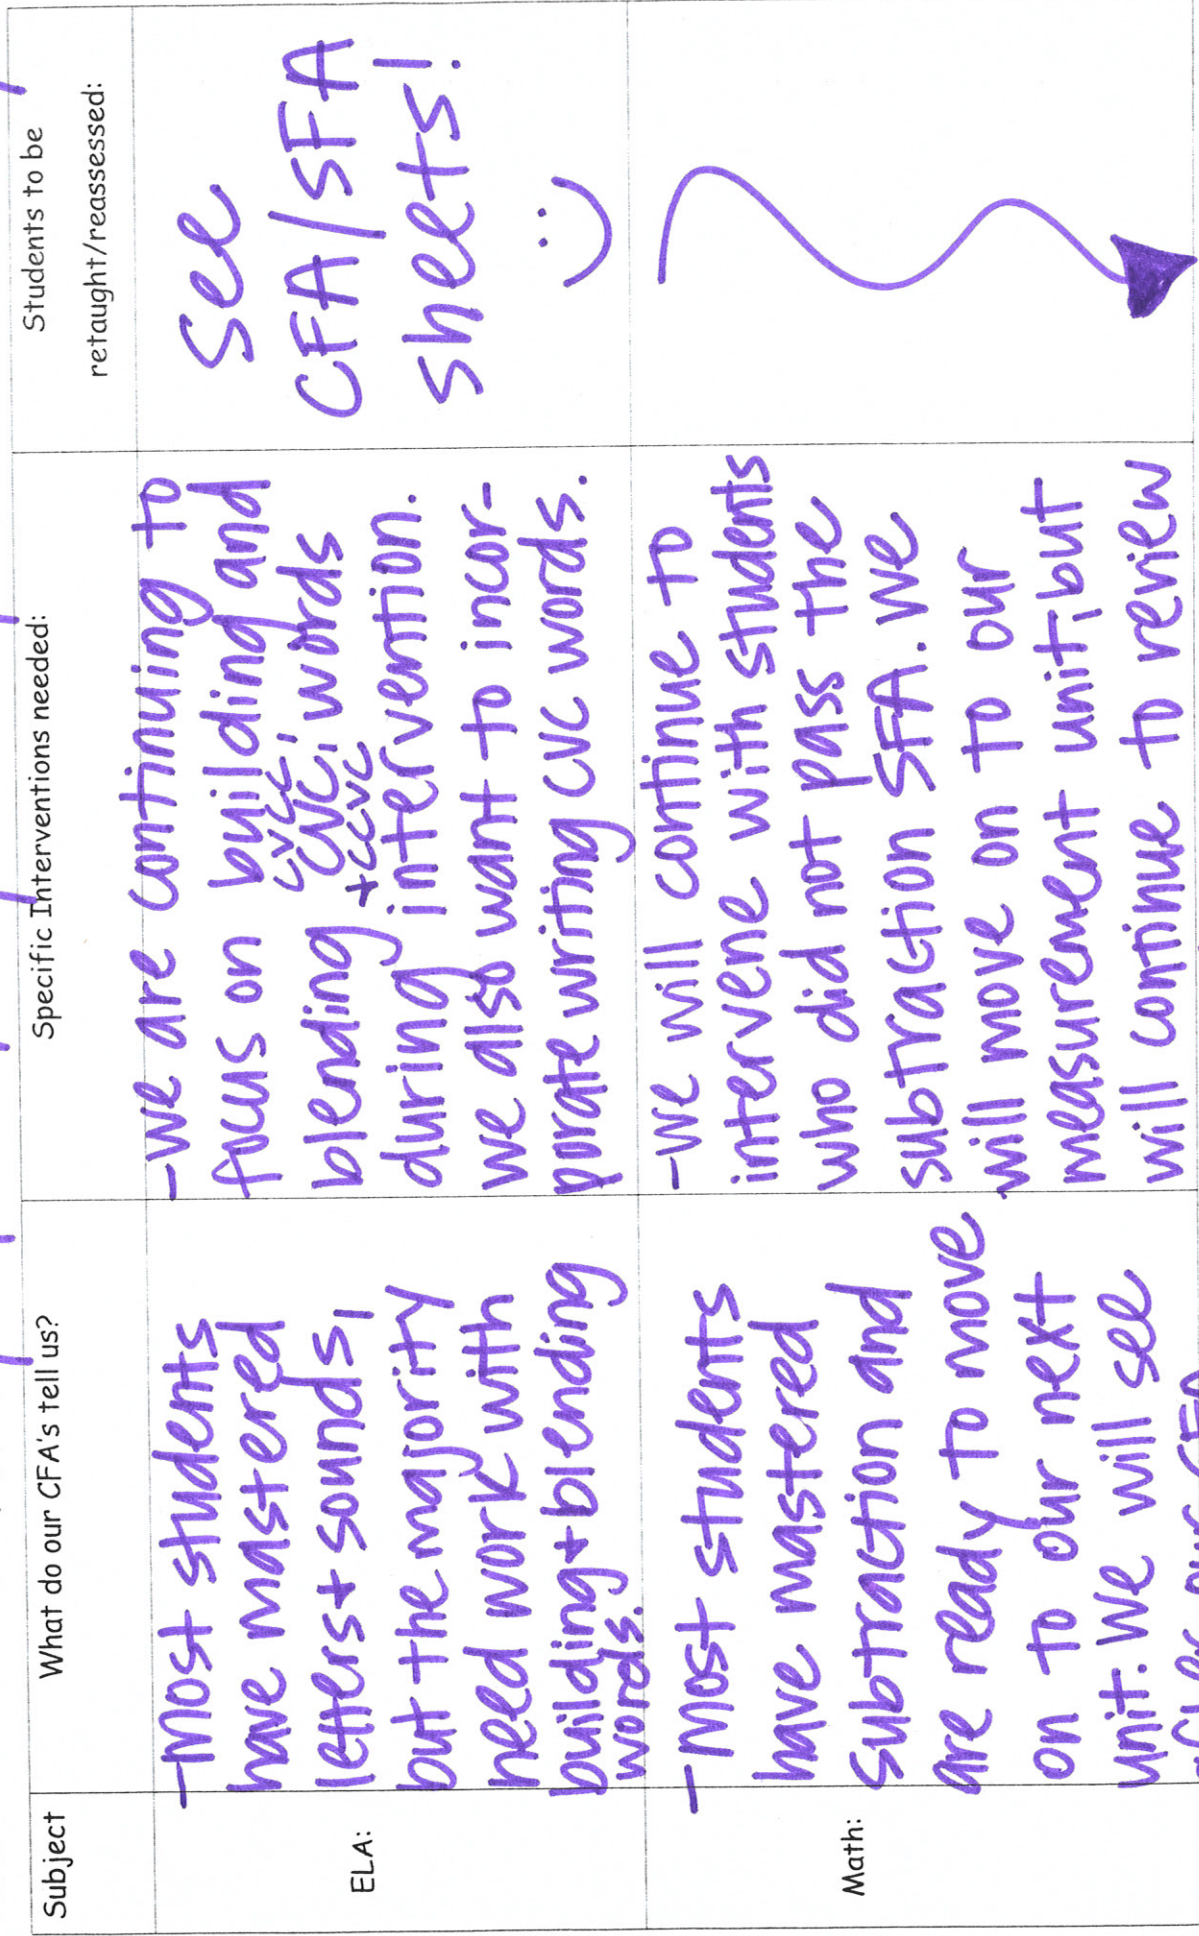 Subject
What do our CFA's tell us?
Specific Interventions needed:
Students to be
retaught/reassessed:
ELA:
-Most students
have mastered
letters + sounds,
but the majority
need work with
building + blending
words.
-We are continuing to
focus on building and
CVCC,
blending CVC, words
+ CCVC
during intervention.
We also want to incor-
porate writing CVC words.
See
CFA/SFA
sheets!
Math:
-Most students
have mastered
subtraction and
are ready to move
on to our next
unit. We will see
-We will continue to
intervene with students
who did not pass the
subtraction SFA. We
will move on to our
measurement unit, but
will continue to review